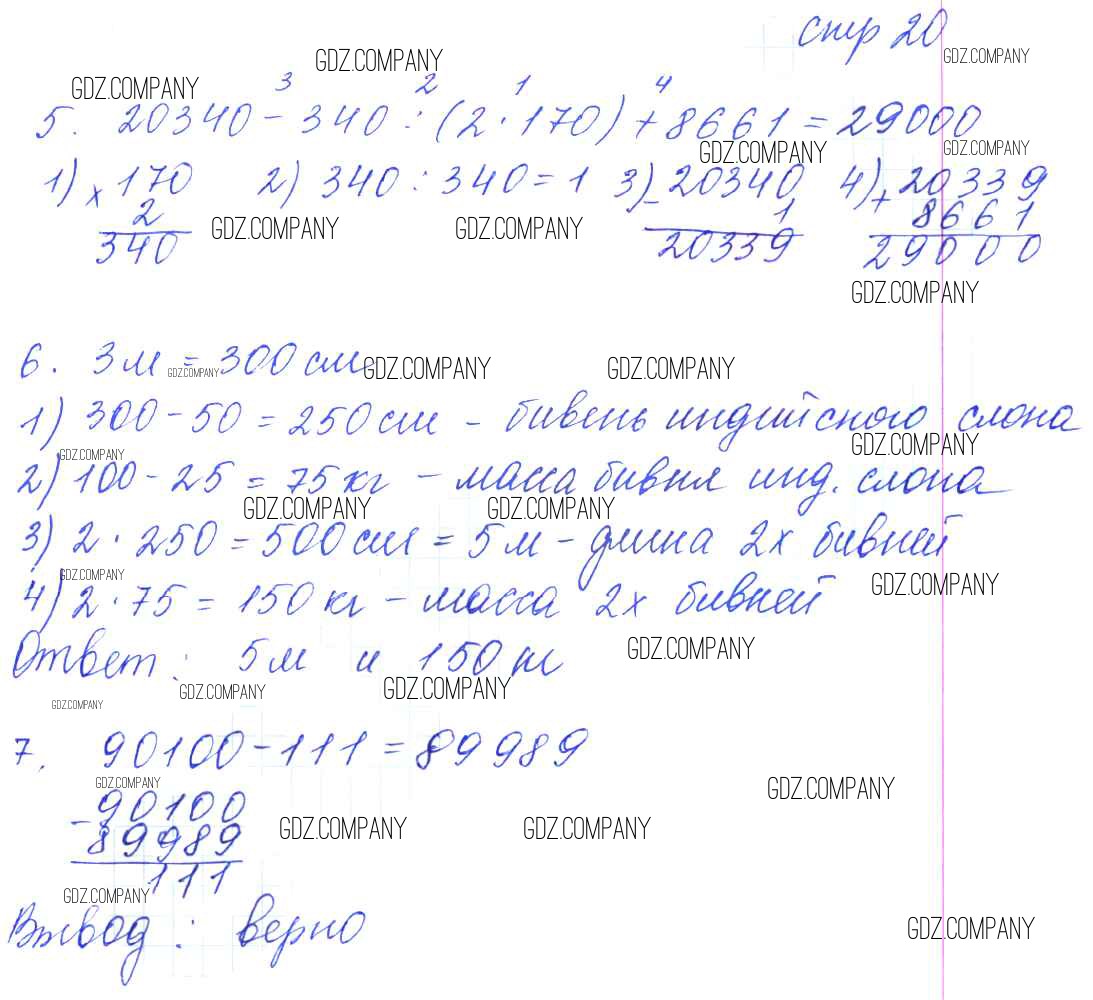 стр 20
GDZ.COMPANY GDZ.COMPANY GDZ.COMPANY
3 2 1 4
5. 20340 - 340 : (2 · 170) + 8661 = 29000
GDZ.COMPANY GDZ.COMPANY
1) × 170 2) 340 : 340 = 1 3) - 20340 4) + 20339
2 1 8661
GDZ.COMPANY GDZ.COMPANY
340 20339 29000
GDZ.COMPANY
6. 3 м = 300 см
GDZ.COMPANY GDZ.COMPANY GDZ.COMPANY
1) 300 - 50 = 250 см - бивень индийского слона
GDZ.COMPANY GDZ.COMPANY
2) 100 - 25 = 75 кг - масса бивня инд. слона
GDZ.COMPANY GDZ.COMPANY
3) 2 · 250 = 500 см = 5 м - длина 2х бивней
GDZ.COMPANY GDZ.COMPANY
4) 2 · 75 = 150 кг - масса 2х бивней
Ответ: 5 м и 150 кг
GDZ.COMPANY
GDZ.COMPANY GDZ.COMPANY GDZ.COMPANY
7. 90100 - 111 = 89989
GDZ.COMPANY GDZ.COMPANY
- 90100
89989
GDZ.COMPANY GDZ.COMPANY
111
GDZ.COMPANY
Вывод: верно
GDZ.COMPANY